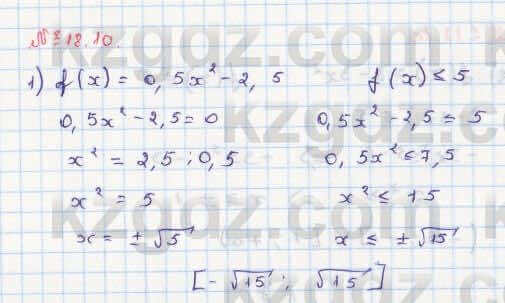 № 18.10.
1) f(x) = 0,5x² - 2,5 f(x) ≤ 5
0,5x² - 2,5 = 0 0,5x² - 2,5 ≤ 5
x² = 2,5 : 0,5 0,5x² ≤ 7,5
x² = 5 x² ≤ 15
x = ± √5 x ≤ ± √15
[-√15 ; √15]
kzgdz.com